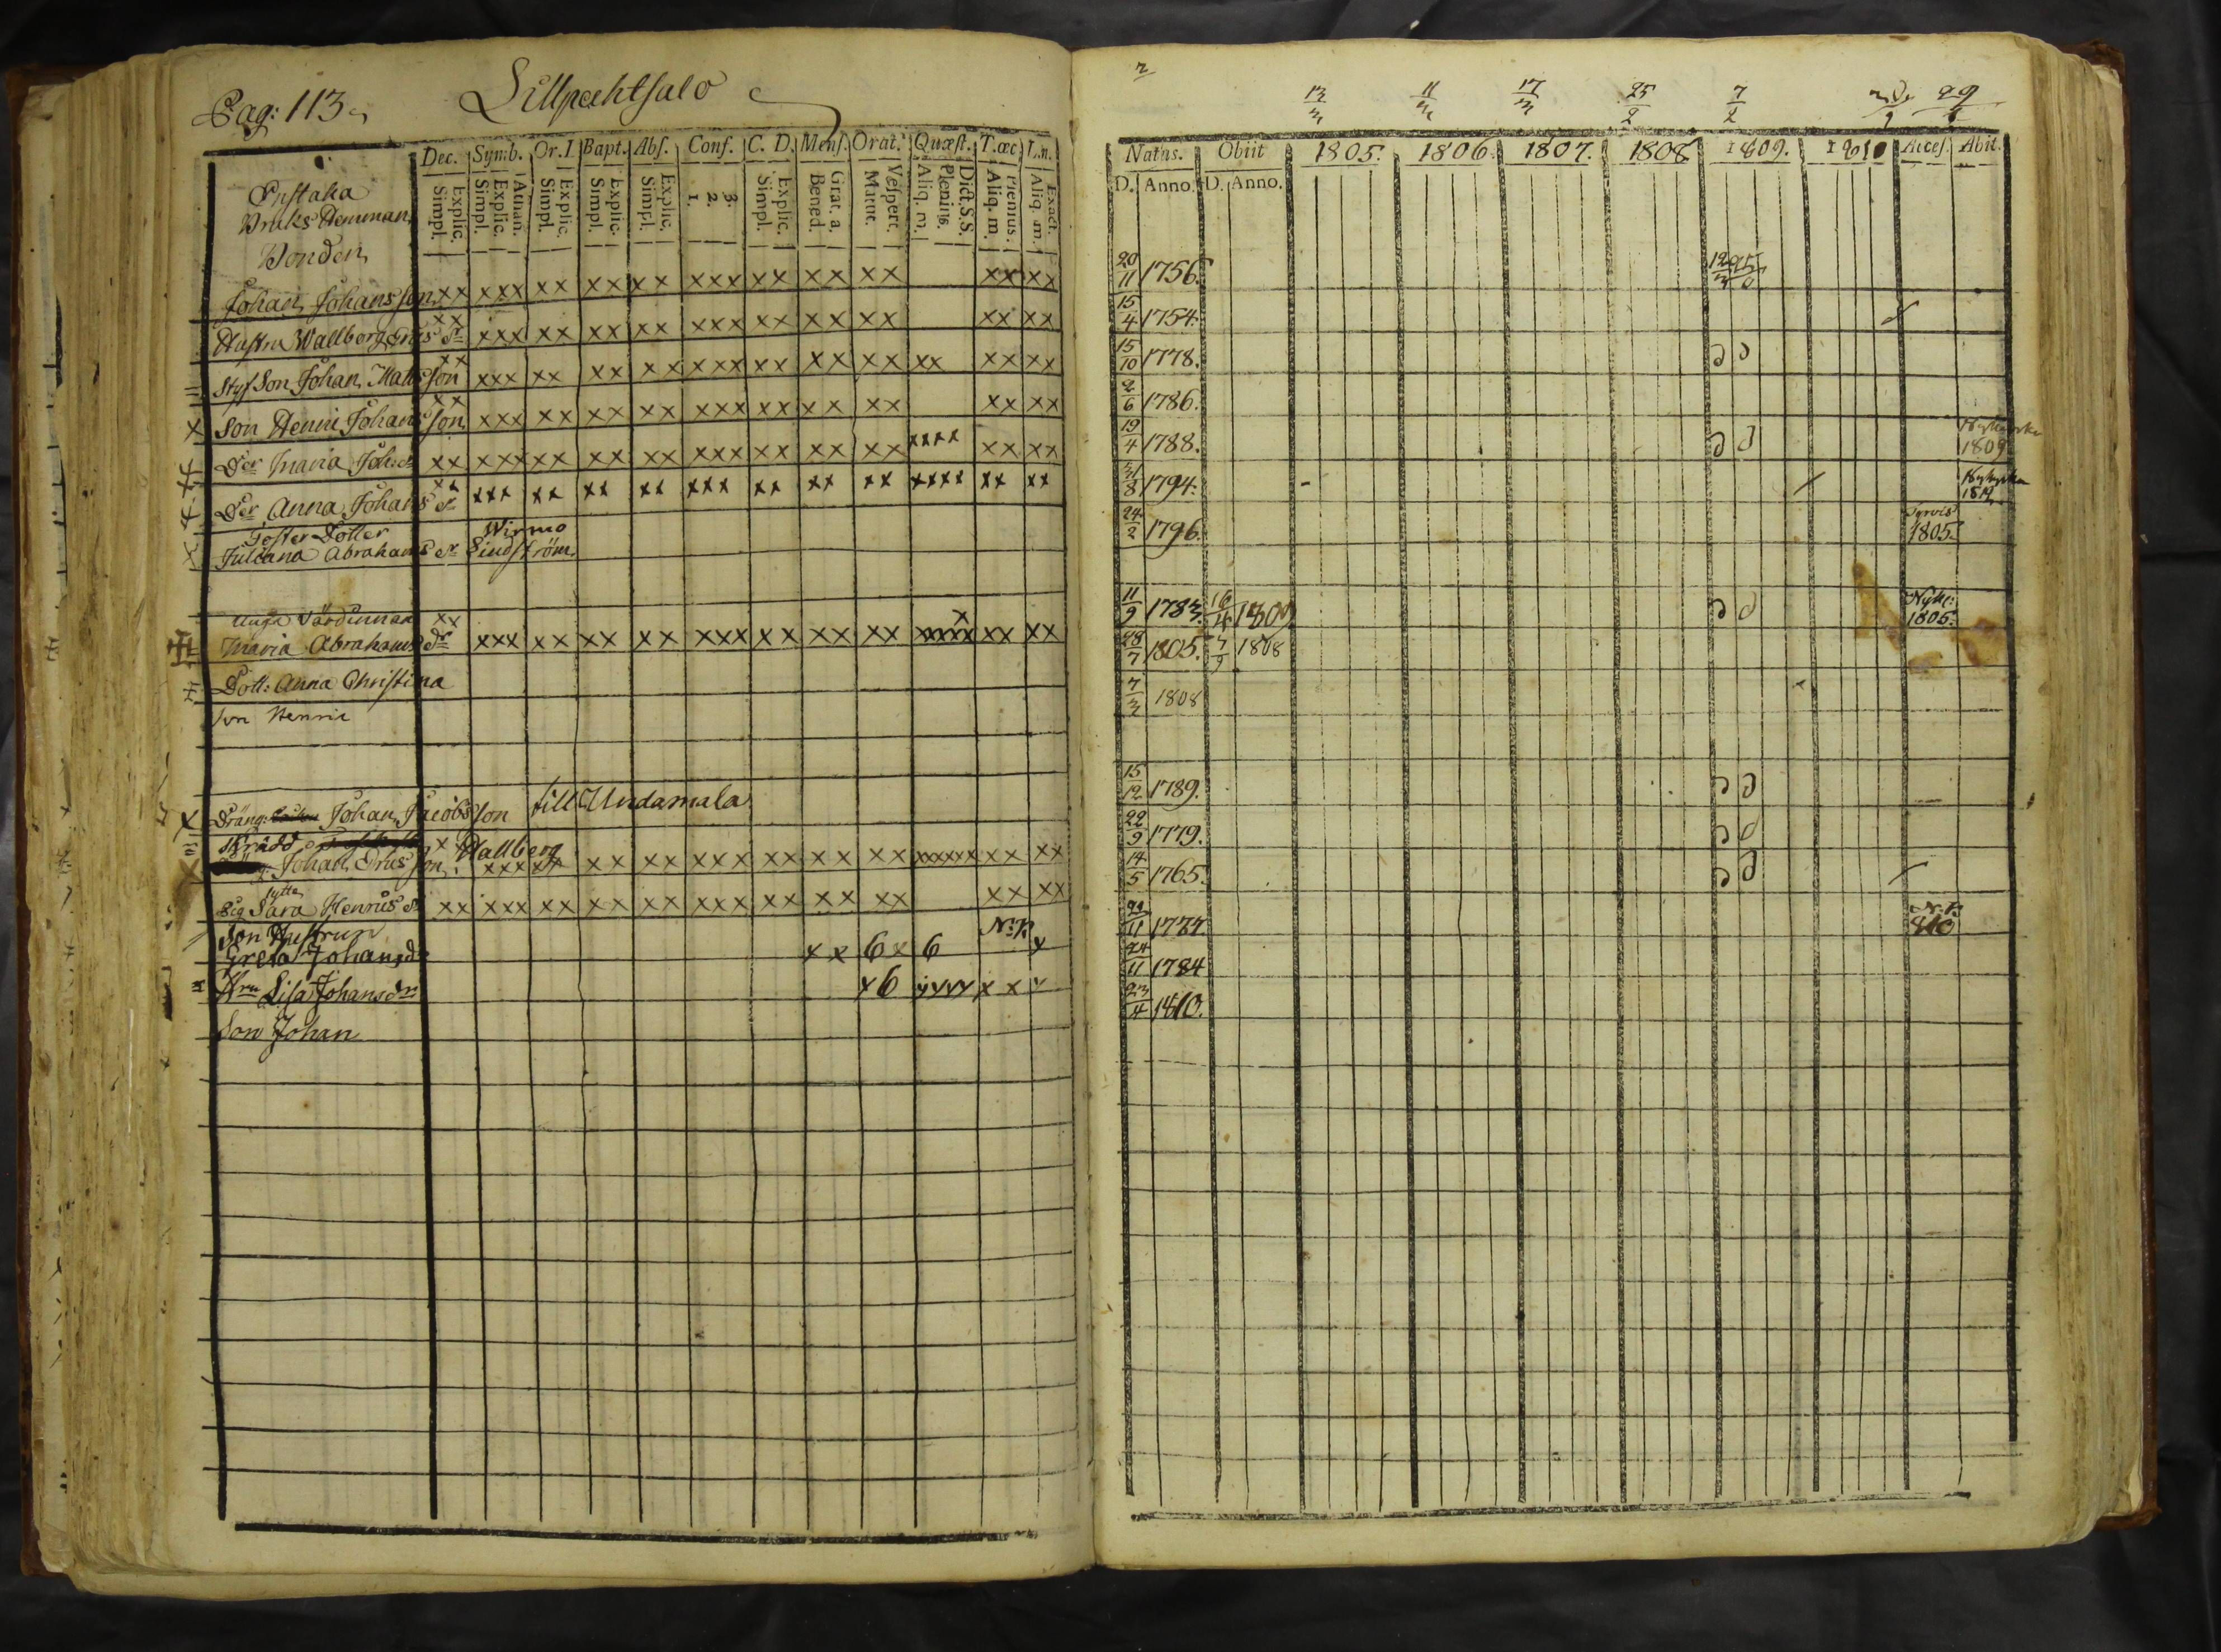 Pag: 113
Lillpachtsalo
Dec. Symb. Or. D Bapt. Abs. Conf. C. D. Mens. Orat. Quæst. T. œc. L. n.
Explic. Simpl. Athan. Explic. Simpl. Explic. Simpl. Explic. Simpl. Explic. Simpl. 3. 2. 1. Explic. Simpl. Grat. a. Bened. Vespert. Matut. Dict. S. S. Plenius. Aliq. m. Plenius. Aliq. m. Exact. Aliq. m.
Enstaka
Bruks Hemman
Bonden
Johan Johansson xx xxx xx xx xx xxx xx xx xx xx xx
Hustru Wallborg Eriksdr xx xxx xx xx xx xxx xx xx xx xx xx
Styf Son Johan Matsson xx xxx xx xx xx xxx xx xx xx xx xx xx
Son Henric Johansson xx xxx xx xx xx xxx xx xx xx xx xx
Der Maria Joh:dr xx xxx xx xx xx xxx xx xx xx xxxx xx xx
Der Anna Johansdr xx xxx xx xx xx xxx xx xx xx xxxx xx xx
Foster Dotter Wirmo
Juliana Abrahamsdr Lindström
Unga Värdinnan
Maria Abrahamsdr xx xxx xx xx xx xxx xx xx xx xxxxx xx xx
Dott: Anna Christina
Son Henric
Dräng Johan Jacobsson till Undamala
Skrädd Hallberg
Johan Ericsson xxx xx xx xx xxx xx xx xx xxxxxx xx xx
Pig Sara Henricsdr xx xxx xx xx xx xxx xx xx xx xx xx
Son Hustrun N:k
Greta Johansdr x x 6 x 6 x
Hru Lisa Johansdr x 6 xxxx x x x
Son Johan
2
13/3 11/3 17/3 25/2 7/2 29
Natus. Obiit 1805. 1806. 1807. 1808. 1809. 1810 Acces. Abit.
D. Anno. D. Anno.
20/11 1756.
15/4 1754.
15/10 1778.
2/6 1786.
19/4 1788. 1809
31/8 1794.
24/2 1796. 1805.
11/9 1783. 16/4 1809 Nyk: 1805.
28/7 1805. 7/9 1808
7/3 1808
15/12 1789.
22/9 1779.
14/5 1765.
22/11 1777 N.k 810
24/11 1784
23/4 1810.